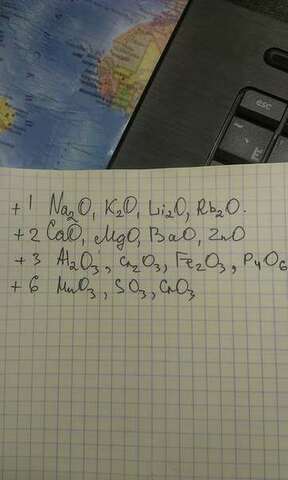 esc
+1 Na₂O, K₂O, Li₂O, Rb₂O.
+2 CaO, MgO, BaO, ZnO
+3 Al₂O₃, Cr₂O₃, Fe₂O₃, P₄O₆
+6 MnO₃, SO₃, CrO₃